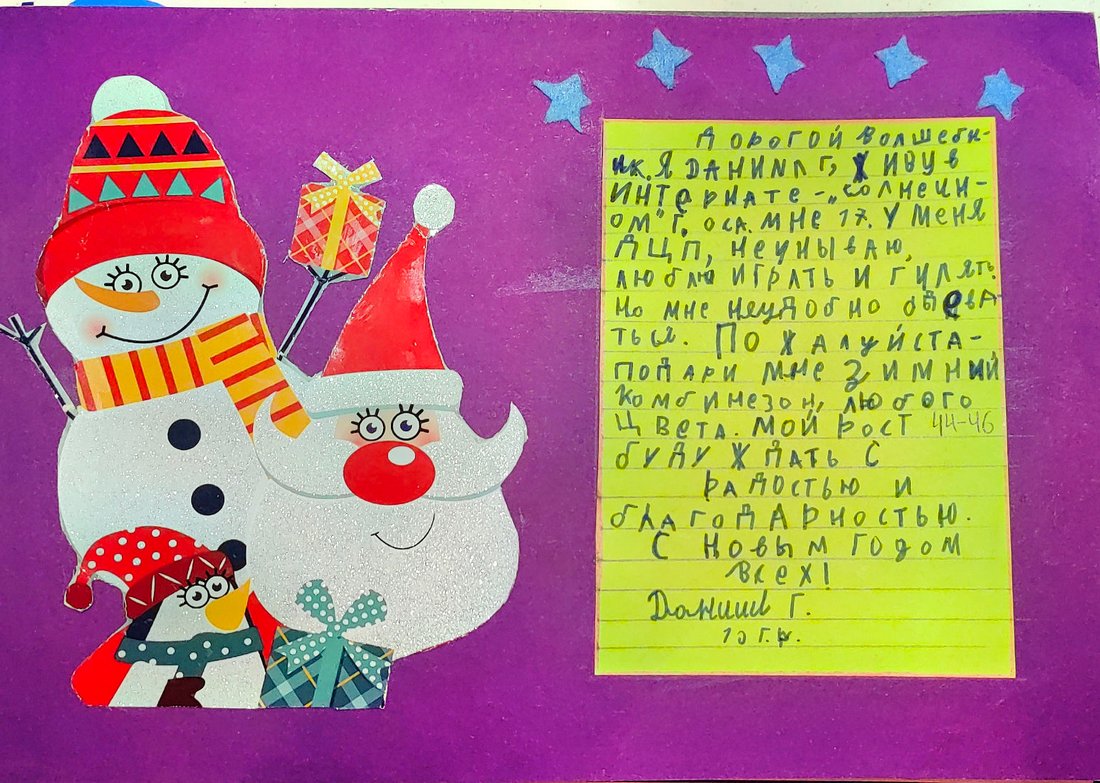 Дорогой Волшебн-
ик. Я ДАНИИЛ Г, ЖИВУ В
ИНТЕРНАТЕ - „Солнечн-
ом" Г. оса. МНЕ 17. У МЕНЯ
ДЦП, НЕ УНЫВАЮ,
люблю ИГРАТЬ И ГУЛЯТЬ.
Но мне неудобно одева-
ться. Пожалуйста-
подари мне Зимний
Комбинезон, любого
цвета. Мой рост 44-46
буду ждать с
радостью и
благодарностью.
С Новым годом
всех!
Даниил Г.
10 г.р.